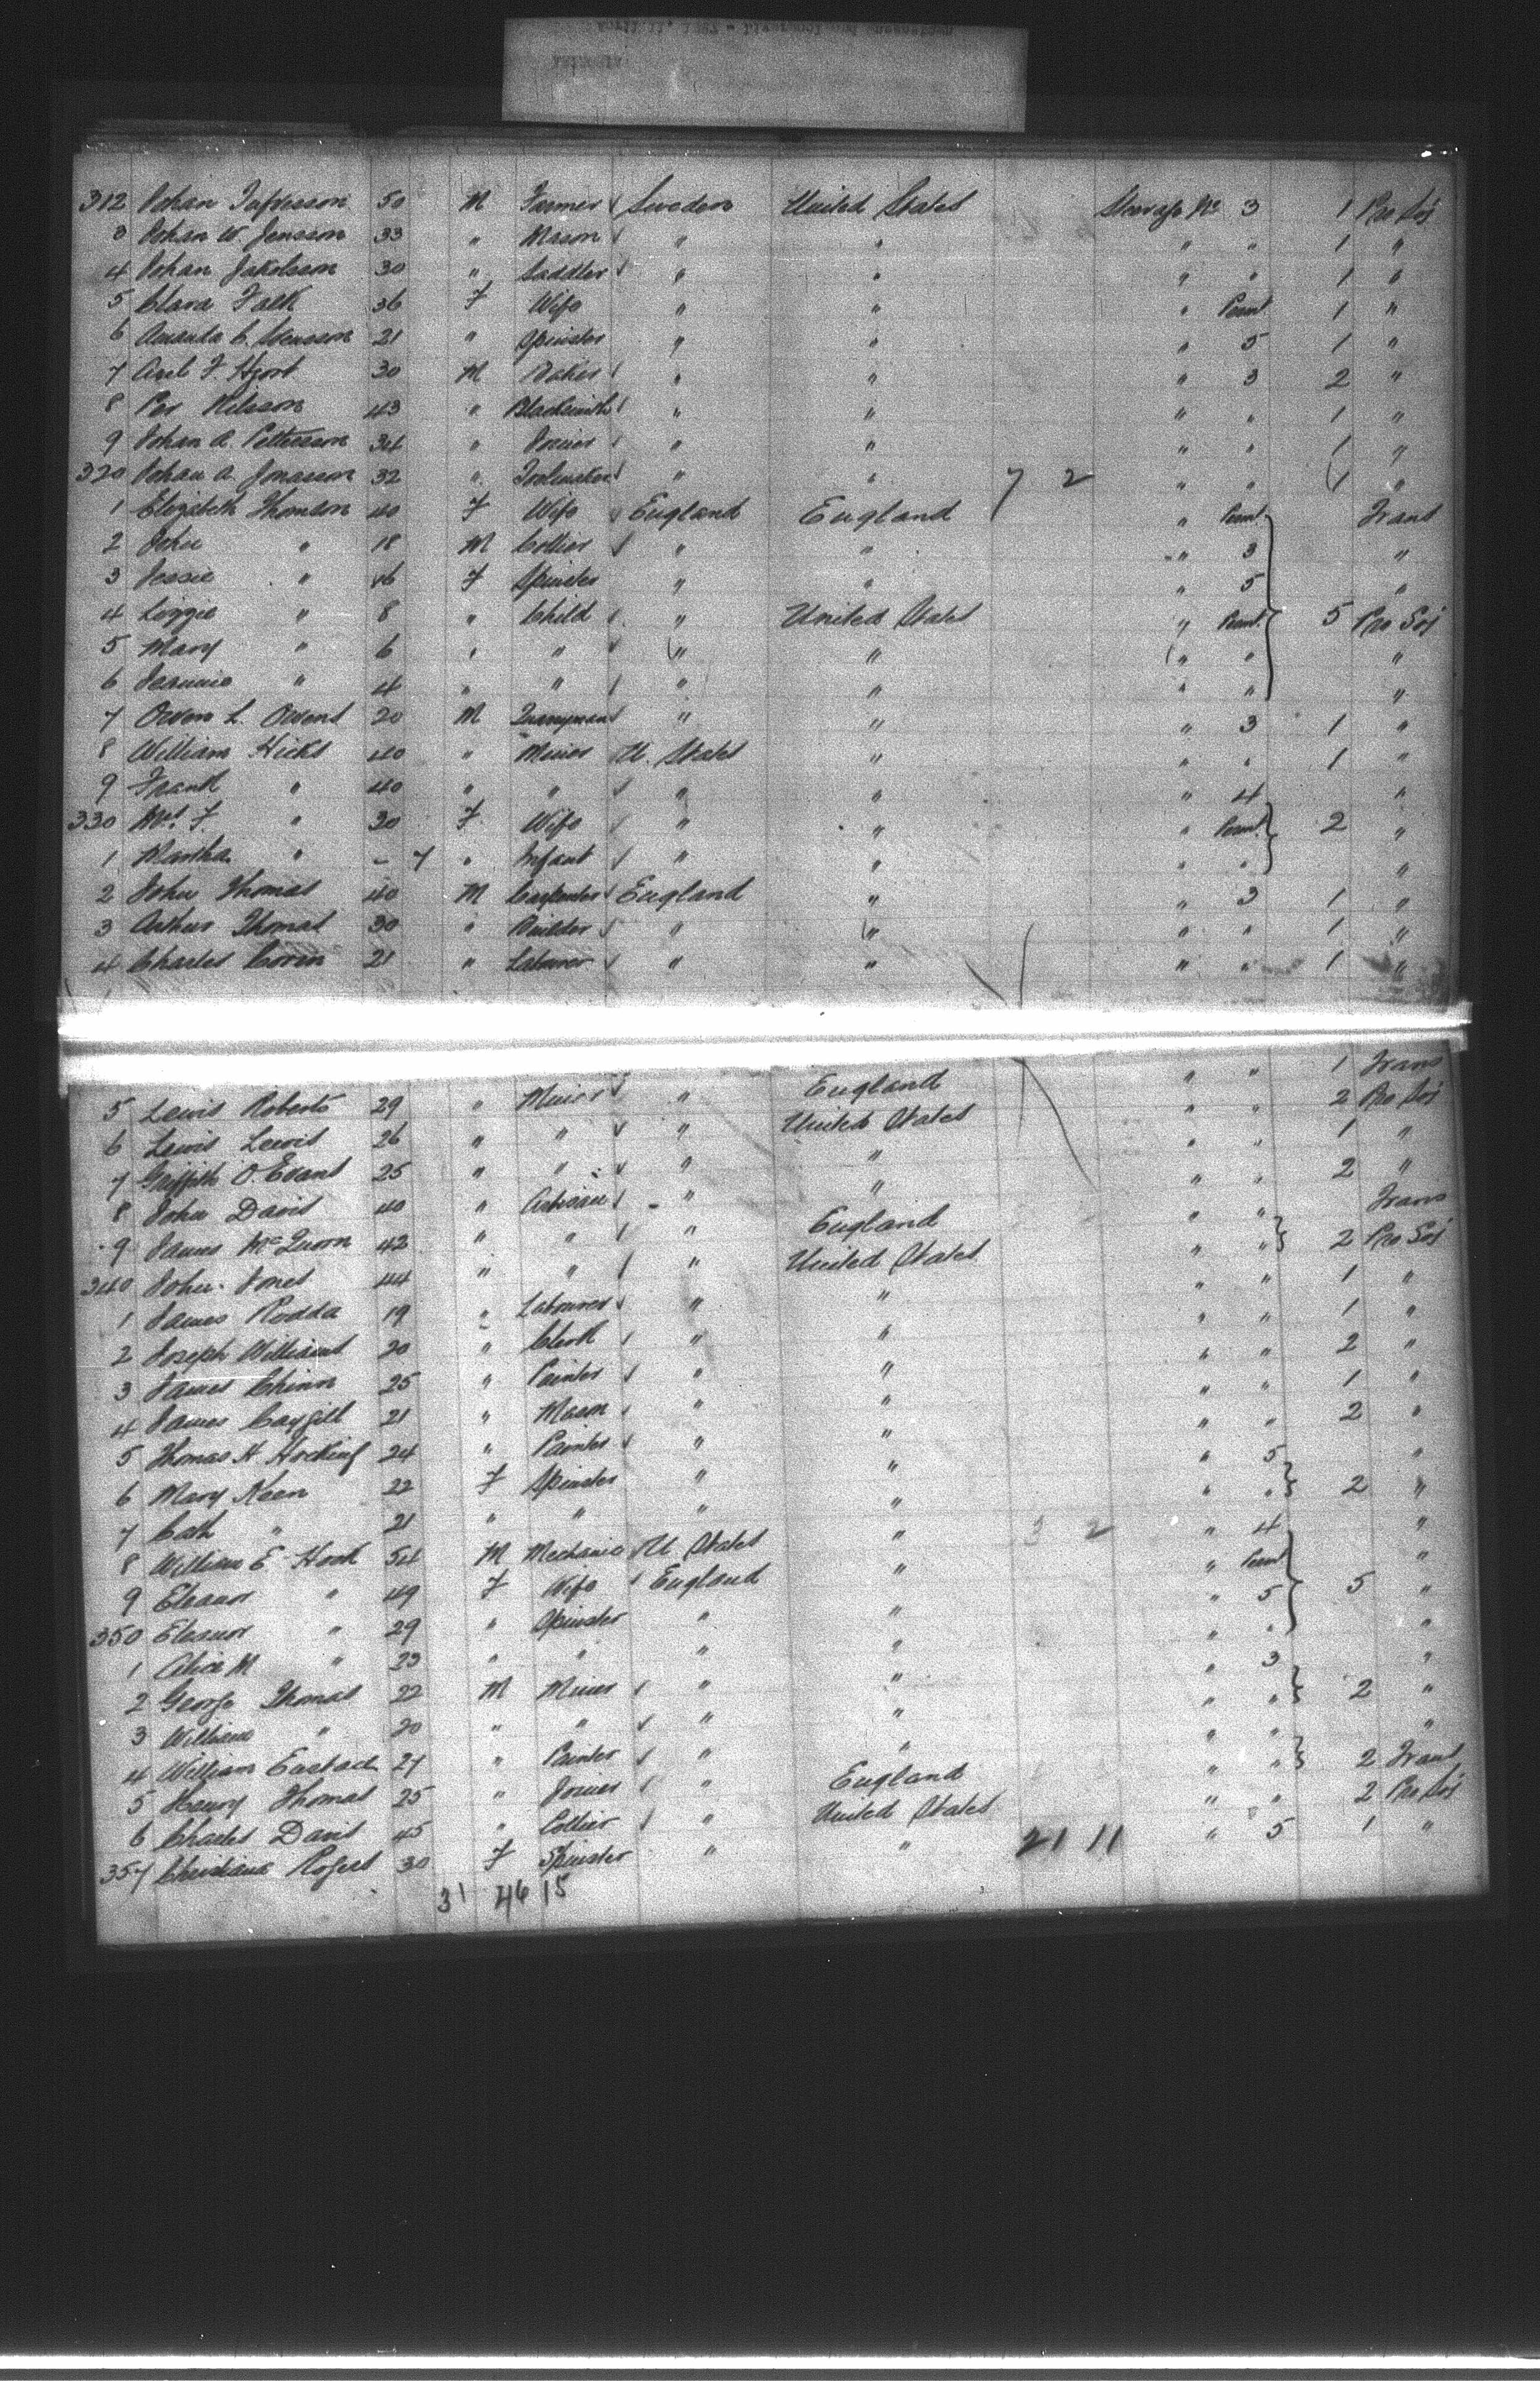 312 Johan 50 M Farmer Sweden United States Steerage No 3 1 Pro Soj
3 Johan W. Jensson 33 " Mason " " " " 1 "
4 Johan Jakobsson 30 " Saddler " " " " 1 "
5 Clara Falk 36 F Wife " " " 1 "
6 Amanda C. Svensson 21 " Spinster " " " 5 1 "
7 Axel F. Hjort 30 M Baker " " " 3 2 "
8 Per Nilsson 43 " Blacksmith " " " " 1 "
9 Johan A. Pettersson 34 " Joiner " " " " 1 "
320 Johan A. Jonasson 32 " Toolmaker " " 7 2 " " 1 "
1 Elizabeth Thomson 40 F Wife England England " Trans
2 John " 18 M Collier " " " 3 "
3 Jessie " 16 F Spinster " " " 5 "
4 Lizzie " 8 " Child " United States " 5 Pro Soj
5 Mary " 6 " " " " " " "
6 Jeannie " 4 " " " " " " "
7 Owen L. Owens 20 M Quarryman " " " 3 1 "
8 William Hicks 40 " Miner U. States " " " 1 "
9 Frank " 40 " " " " " 4 "
330 Mrs F. " 30 F Wife " " " 2 "
1 Martha " - 7 " Infant " " " " "
2 John Thomas 40 M Carpenter England " " 3 1 "
3 Arthur Thomas 30 " Builder " " " " 1 "
4 Charles Coven 21 " Labourer " " " " 1 "
5 Lewis Roberts 29 " Miner " England " " 1 Trans
6 Lewis Lewis 26 " " " United States " " 2 Pro Soj
7 Griffith O. Evans 25 " " " " " " 1 "
8 John Davis 40 " Artisan " " " " 2 "
9 James McQuorn 42 " " " England " " Trans
340 John Jones 44 " " " United States " " 2 Pro Soj
1 James Rodda 19 " Labourer " " " " 1 "
2 Joseph Williams 20 " Clerk " " " " 1 "
3 James Chinn 25 " Painter " " " " 2 "
4 James Caygill 21 " Mason " " " " 1 "
5 Thomas H Hocking 24 " Painter " " " " 2 "
6 Mary Keen 22 F Spinster " " " 5 "
7 Cath " 21 " " " " " " 2 "
8 William E Hook 54 M Mechanic U States " 3 2 " 4 "
9 Eleanor " 49 F Wife England " " "
350 Eleanor " 29 " Spinster " " " 5 5 "
1 Alice M " 23 " " " " " " "
2 George Thomas 22 M Miner " " " 3 "
3 William " 20 " " " " " " 2 "
4 William Eustace 27 " Painter " " " " "
5 Henry Thomas 25 " Joiner " England " " 2 Trans
6 Charles Davis 45 " Collier " United States " " 2 Pro Soj
357 Christiana Rogers 30 F Spinster " " 21 11 " 5 1 "
31 46 15